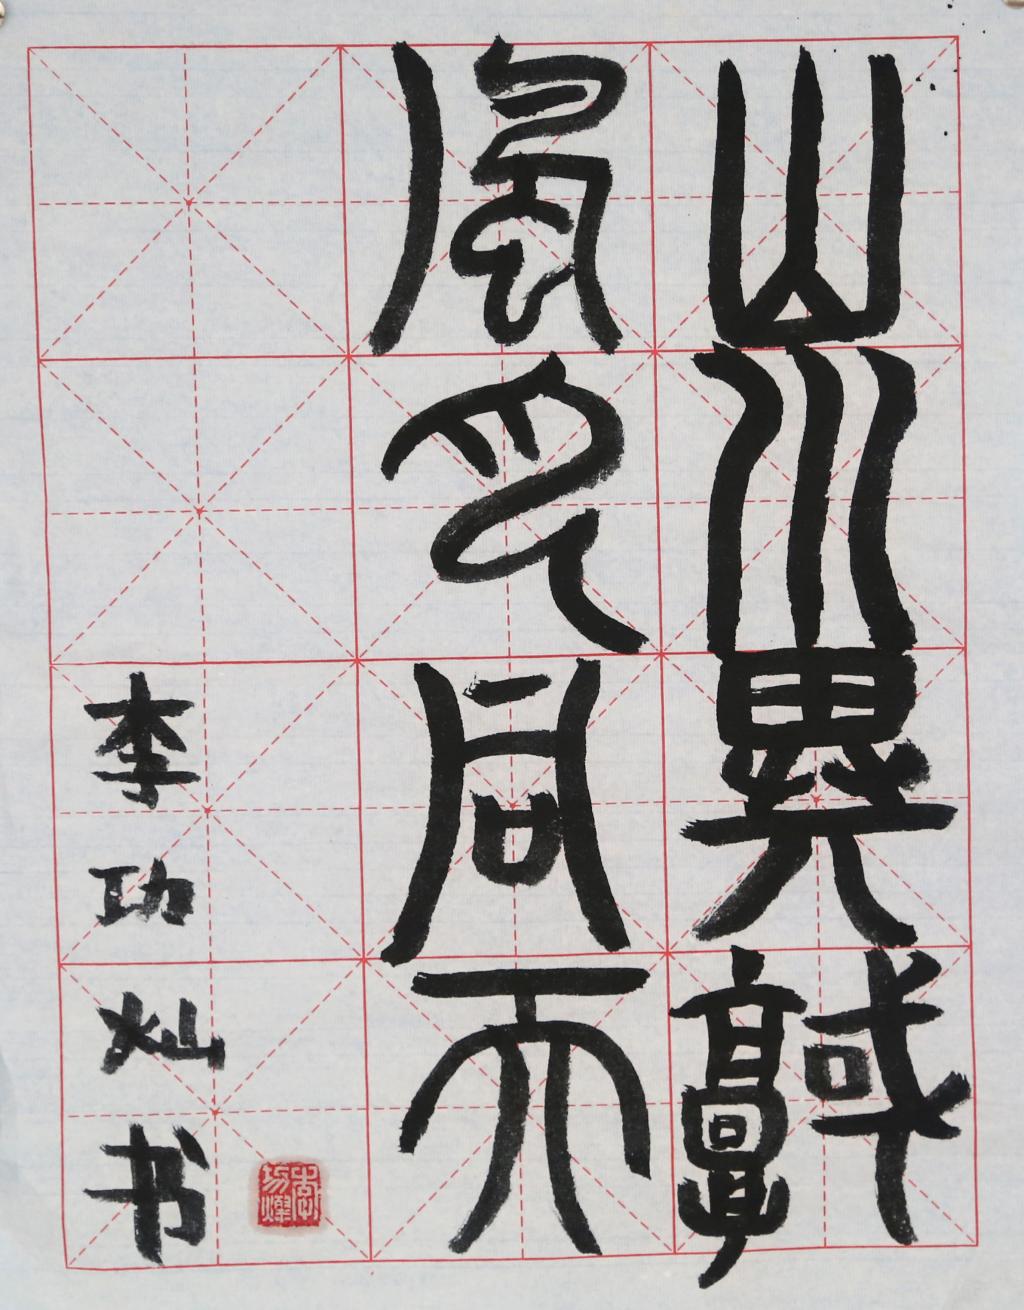 山川異域
風月同天
李功灿书
李功燦